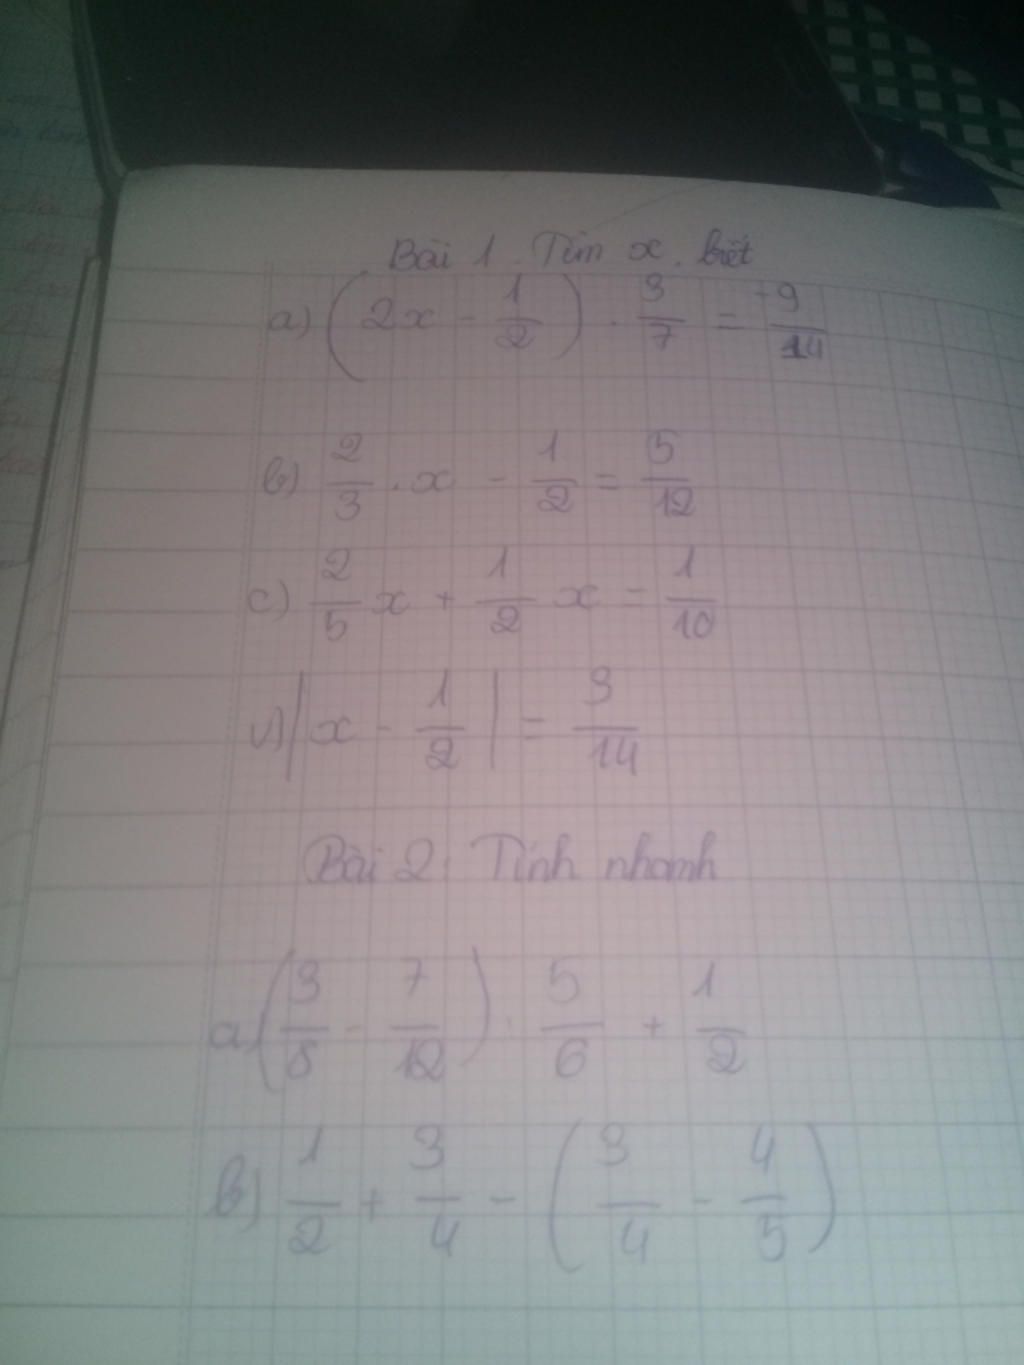 Bài 1. Tìm x. biết
a) (2x - 1/2) . 3/7 = -9/14
b) 2/3 . x - 1/2 = 5/12
c) 2/5 x + 1/2 x = 1/10
d) |x - 1/2| = 3/14
Bài 2: Tính nhanh
a) (3/8 - 7/12) . 5/6 + 1/2
b) 1/2 + 3/4 - (3/4 - 4/5)